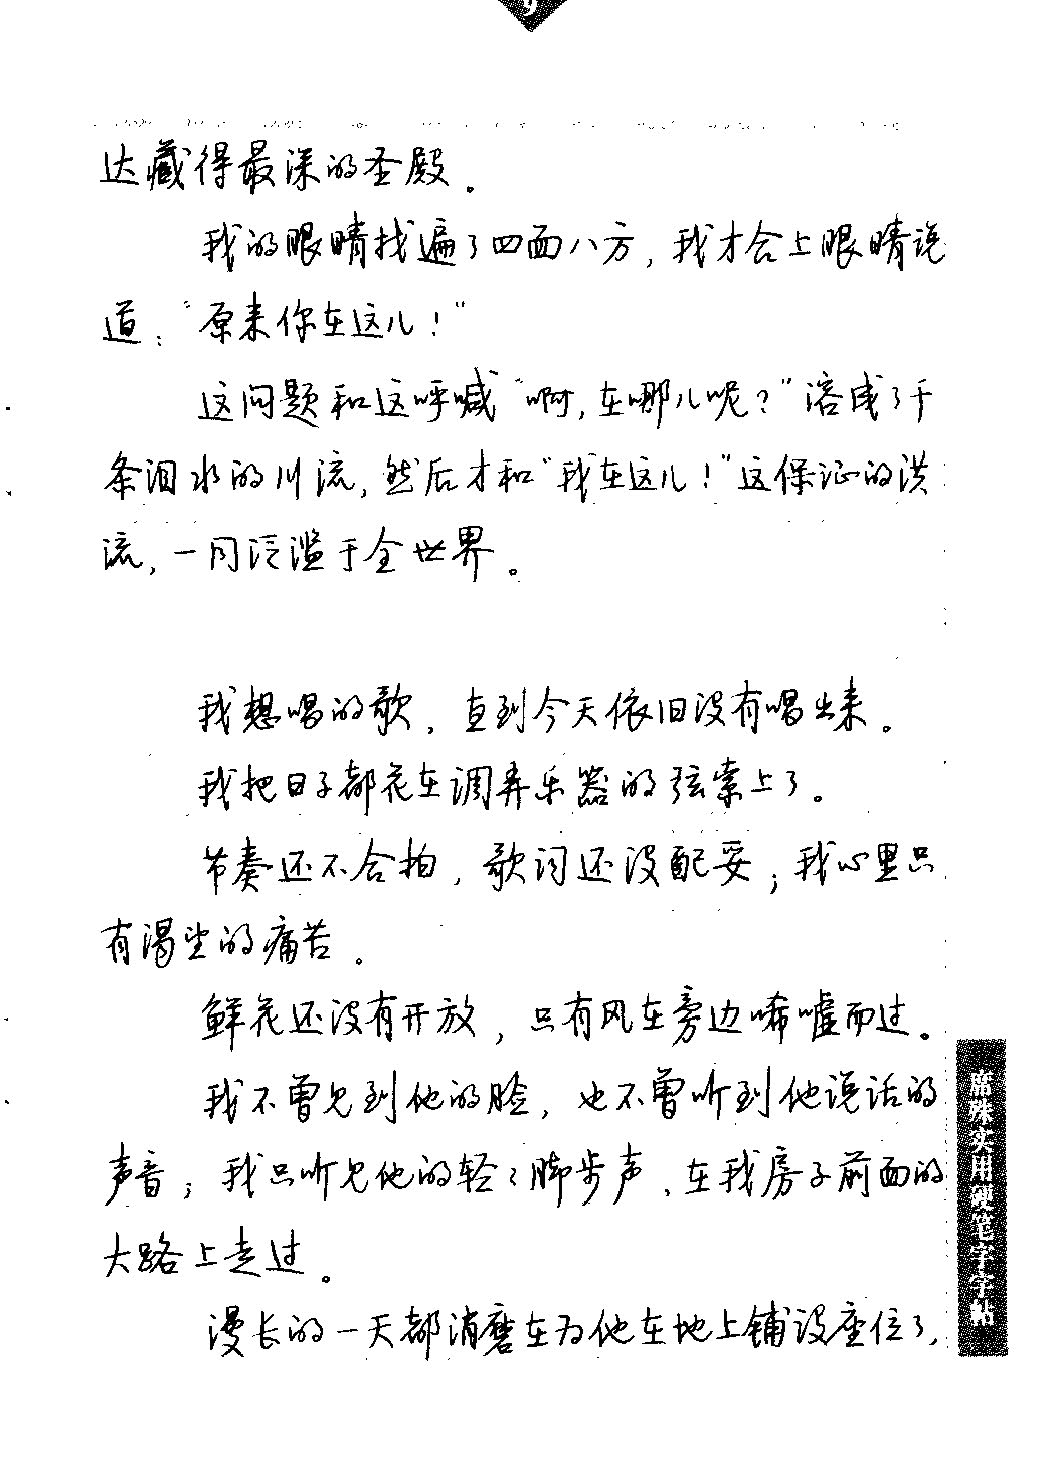 9
达藏得最深的圣殿。
我的眼睛找遍了四面八方,我才合上眼睛说
道:“原来你在这儿!”
这问题和这呼喊“啊,在哪儿呢?”溶成了千
条泪水的川流,然后才和“我在这儿!”这保证的洪
流,一同泛滥于全世界。
我想唱的歌,直到今天依旧没有唱出来。
我把日子都花在调弄乐器的弦索上了。
节奏还不合拍,歌词还没配妥;我心里只
有渴望的痛苦。
鲜花还没有开放,只有风在旁边唏嘘而过。
我不曾见到他的脸,也不曾听到他说话的
声音;我只听见他的轻々脚步声,在我房子前面的
大路上走过。
漫长的一天都消磨在为他在地上铺设座位了,
席殊实用硬笔字字帖